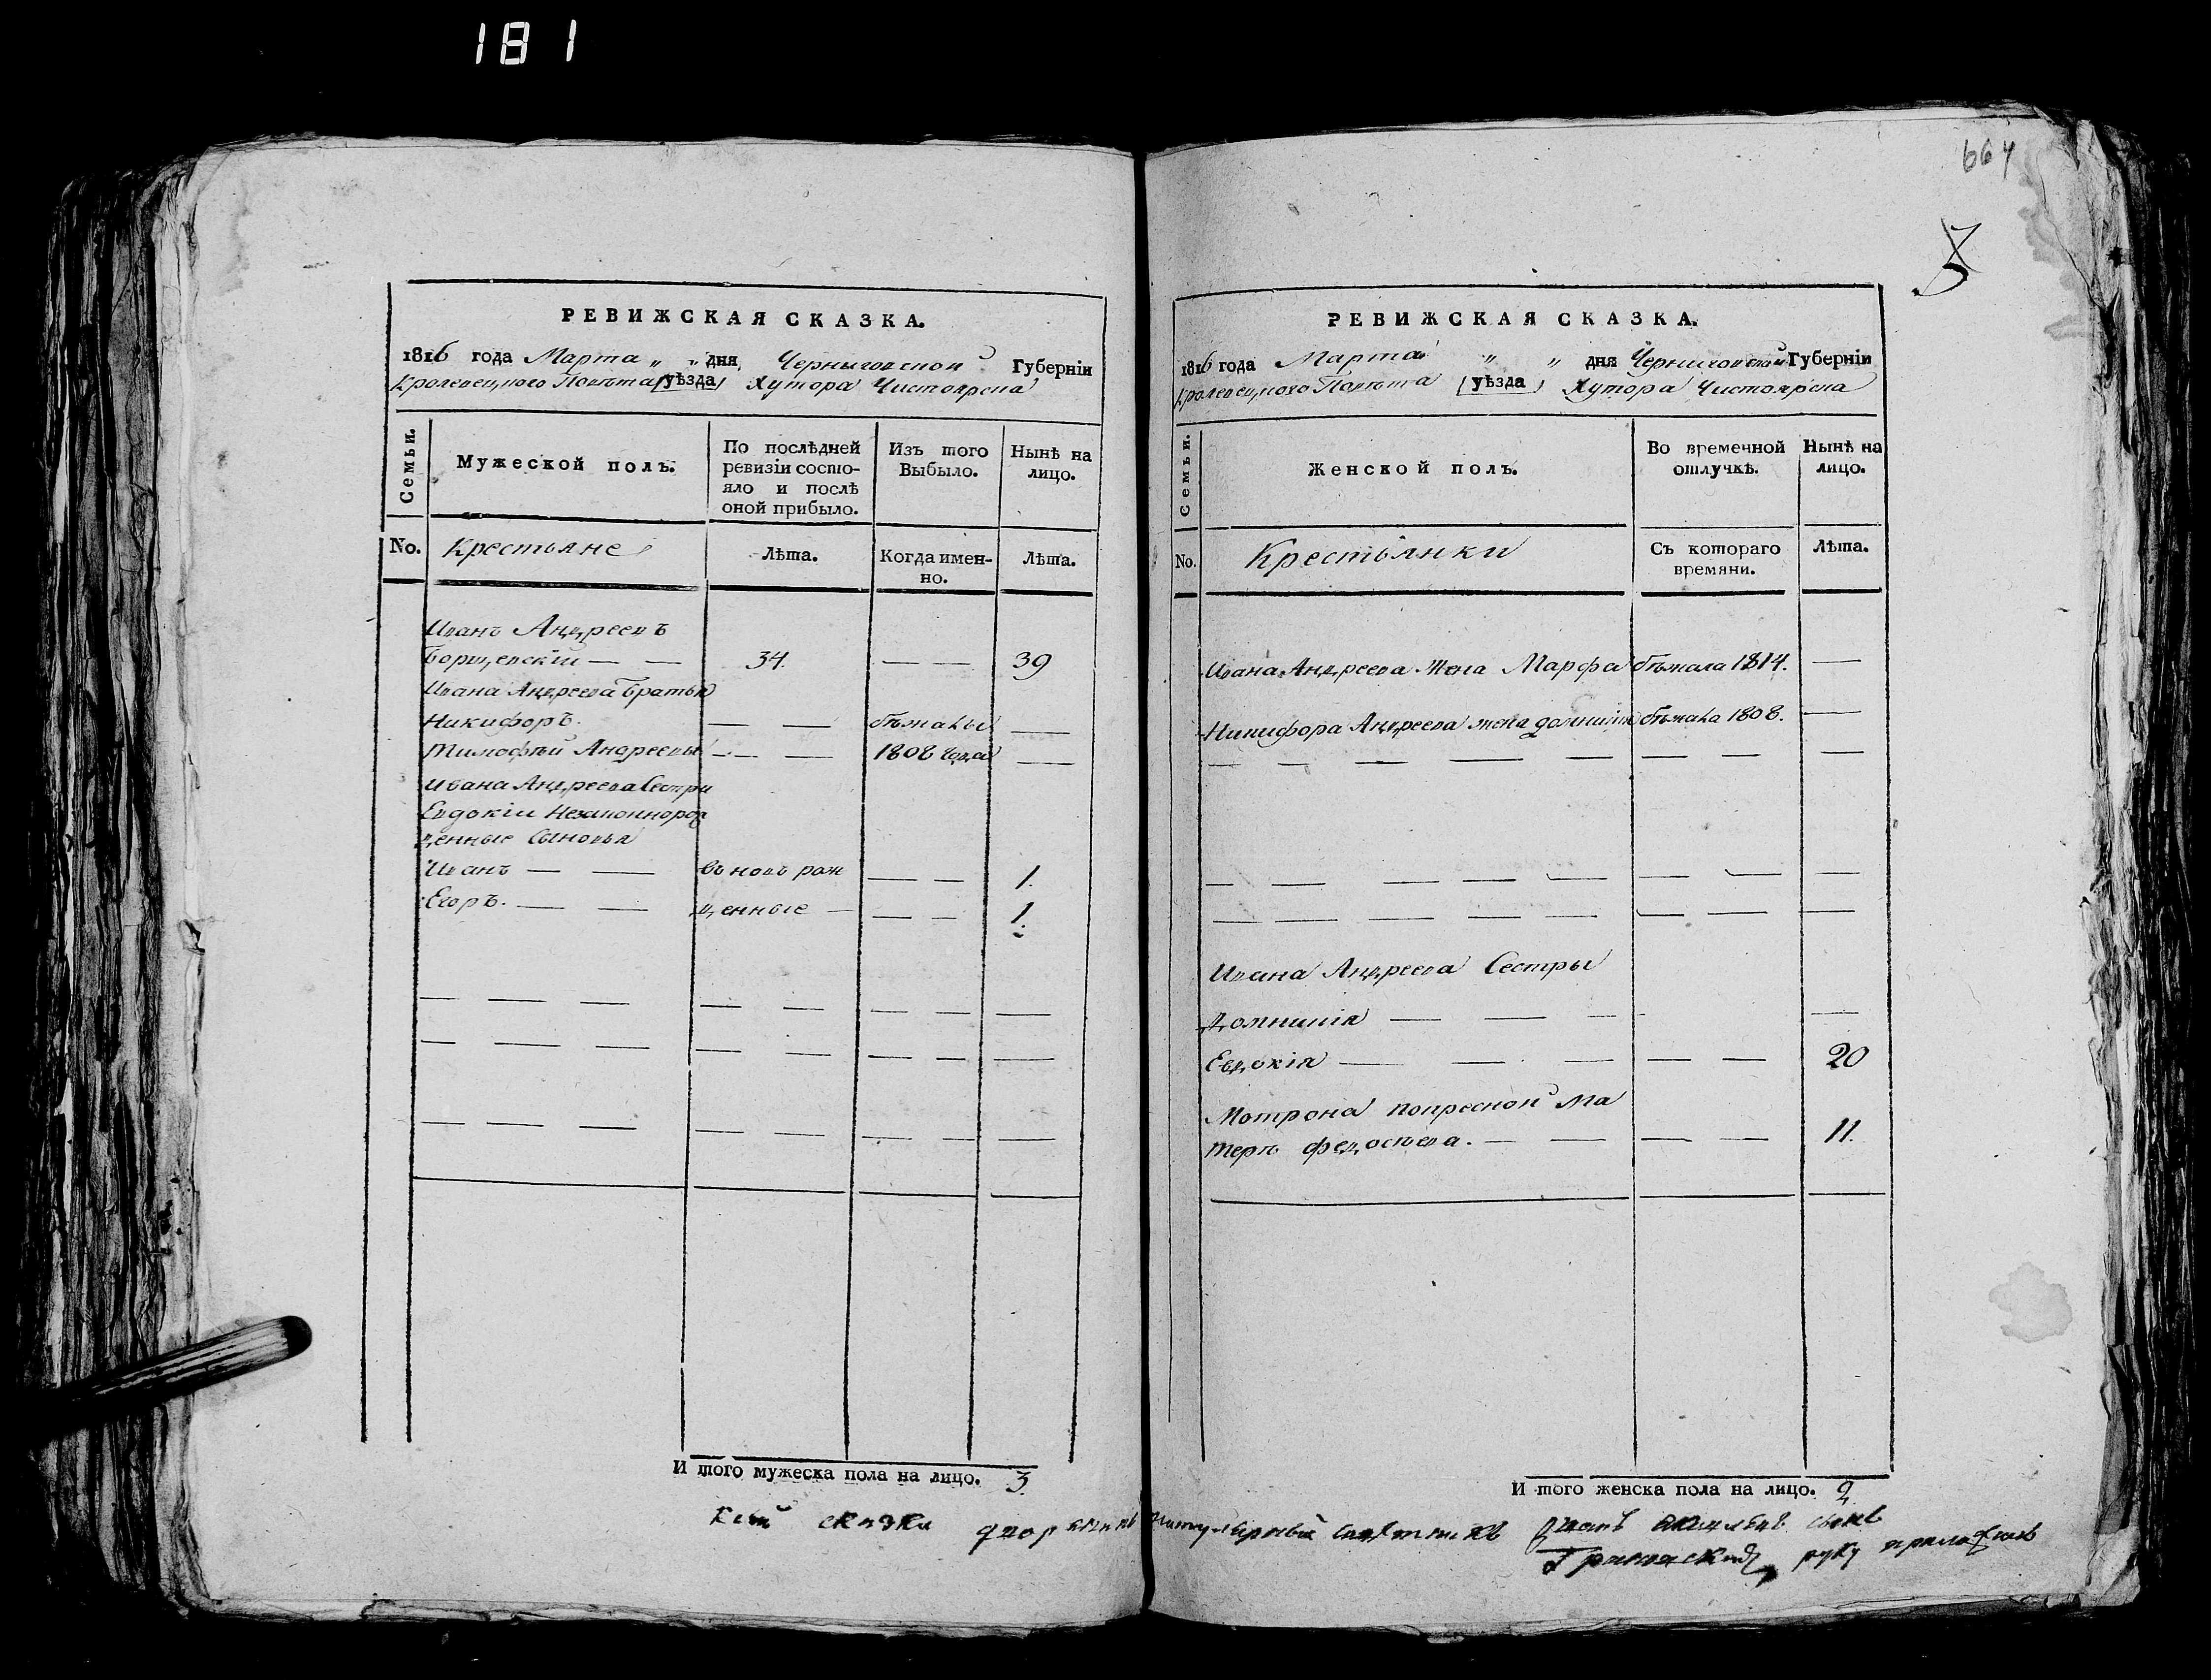 181
РЕВИЖСКАЯ СКАЗКА.
1816 года Марта „ „ дня Черниговской Губерніи
Кролевецкого Повѣта (уѣзда) Хутора
Семьи.
Мужеской полъ.
По послѣдней ревизіи состо-
яло и послѣ
оной прибыло.
Изъ того
Выбыло.
Нынѣ на
лицо.
No.
Крестьяне
Лѣта.
Когда имен-
но.
Лѣта.
Иванъ Андреевъ
Борщевскій — — 34. — — 39
Ивана Андреева Братья
Никифоръ. — — бѣжалы —
Тимофѣй Андреевы — — 1808 года —
Ивана Андреева Сестры
Евдокіи Незаконнорож
денные Сыновья
Иванъ — — вновь рож — — 1.
Егоръ. — — денные — — — 1.
И того мужеска пола на лицо. 3.
664
3
РЕВИЖСКАЯ СКАЗКА.
1816 года Марта „ „ дня Черниговской Губерніи
Кролевецкого Повѣта (уѣзда) Хутора
Семьи.
Женской полъ.
Во временной
отлучкѣ.
Нынѣ на
лицо.
No.
Крестьянки
Съ котораго
времяни.
Лѣта.
Ивана Андреева Жена Марфа бѣжала 1814. —
Никифора Андреева жена Домникія бѣжала 1808. —
Ивана Андреева Сестры
Домникія — — — —
Евдокія — — — — — 20
Мотрона попресной Ма
терѣ Федосѣева. — — — — 11.
И того женска пола на лицо. 2
К сей сказки дворянинъ титулярный советникъ сынъ
руку приложилъ